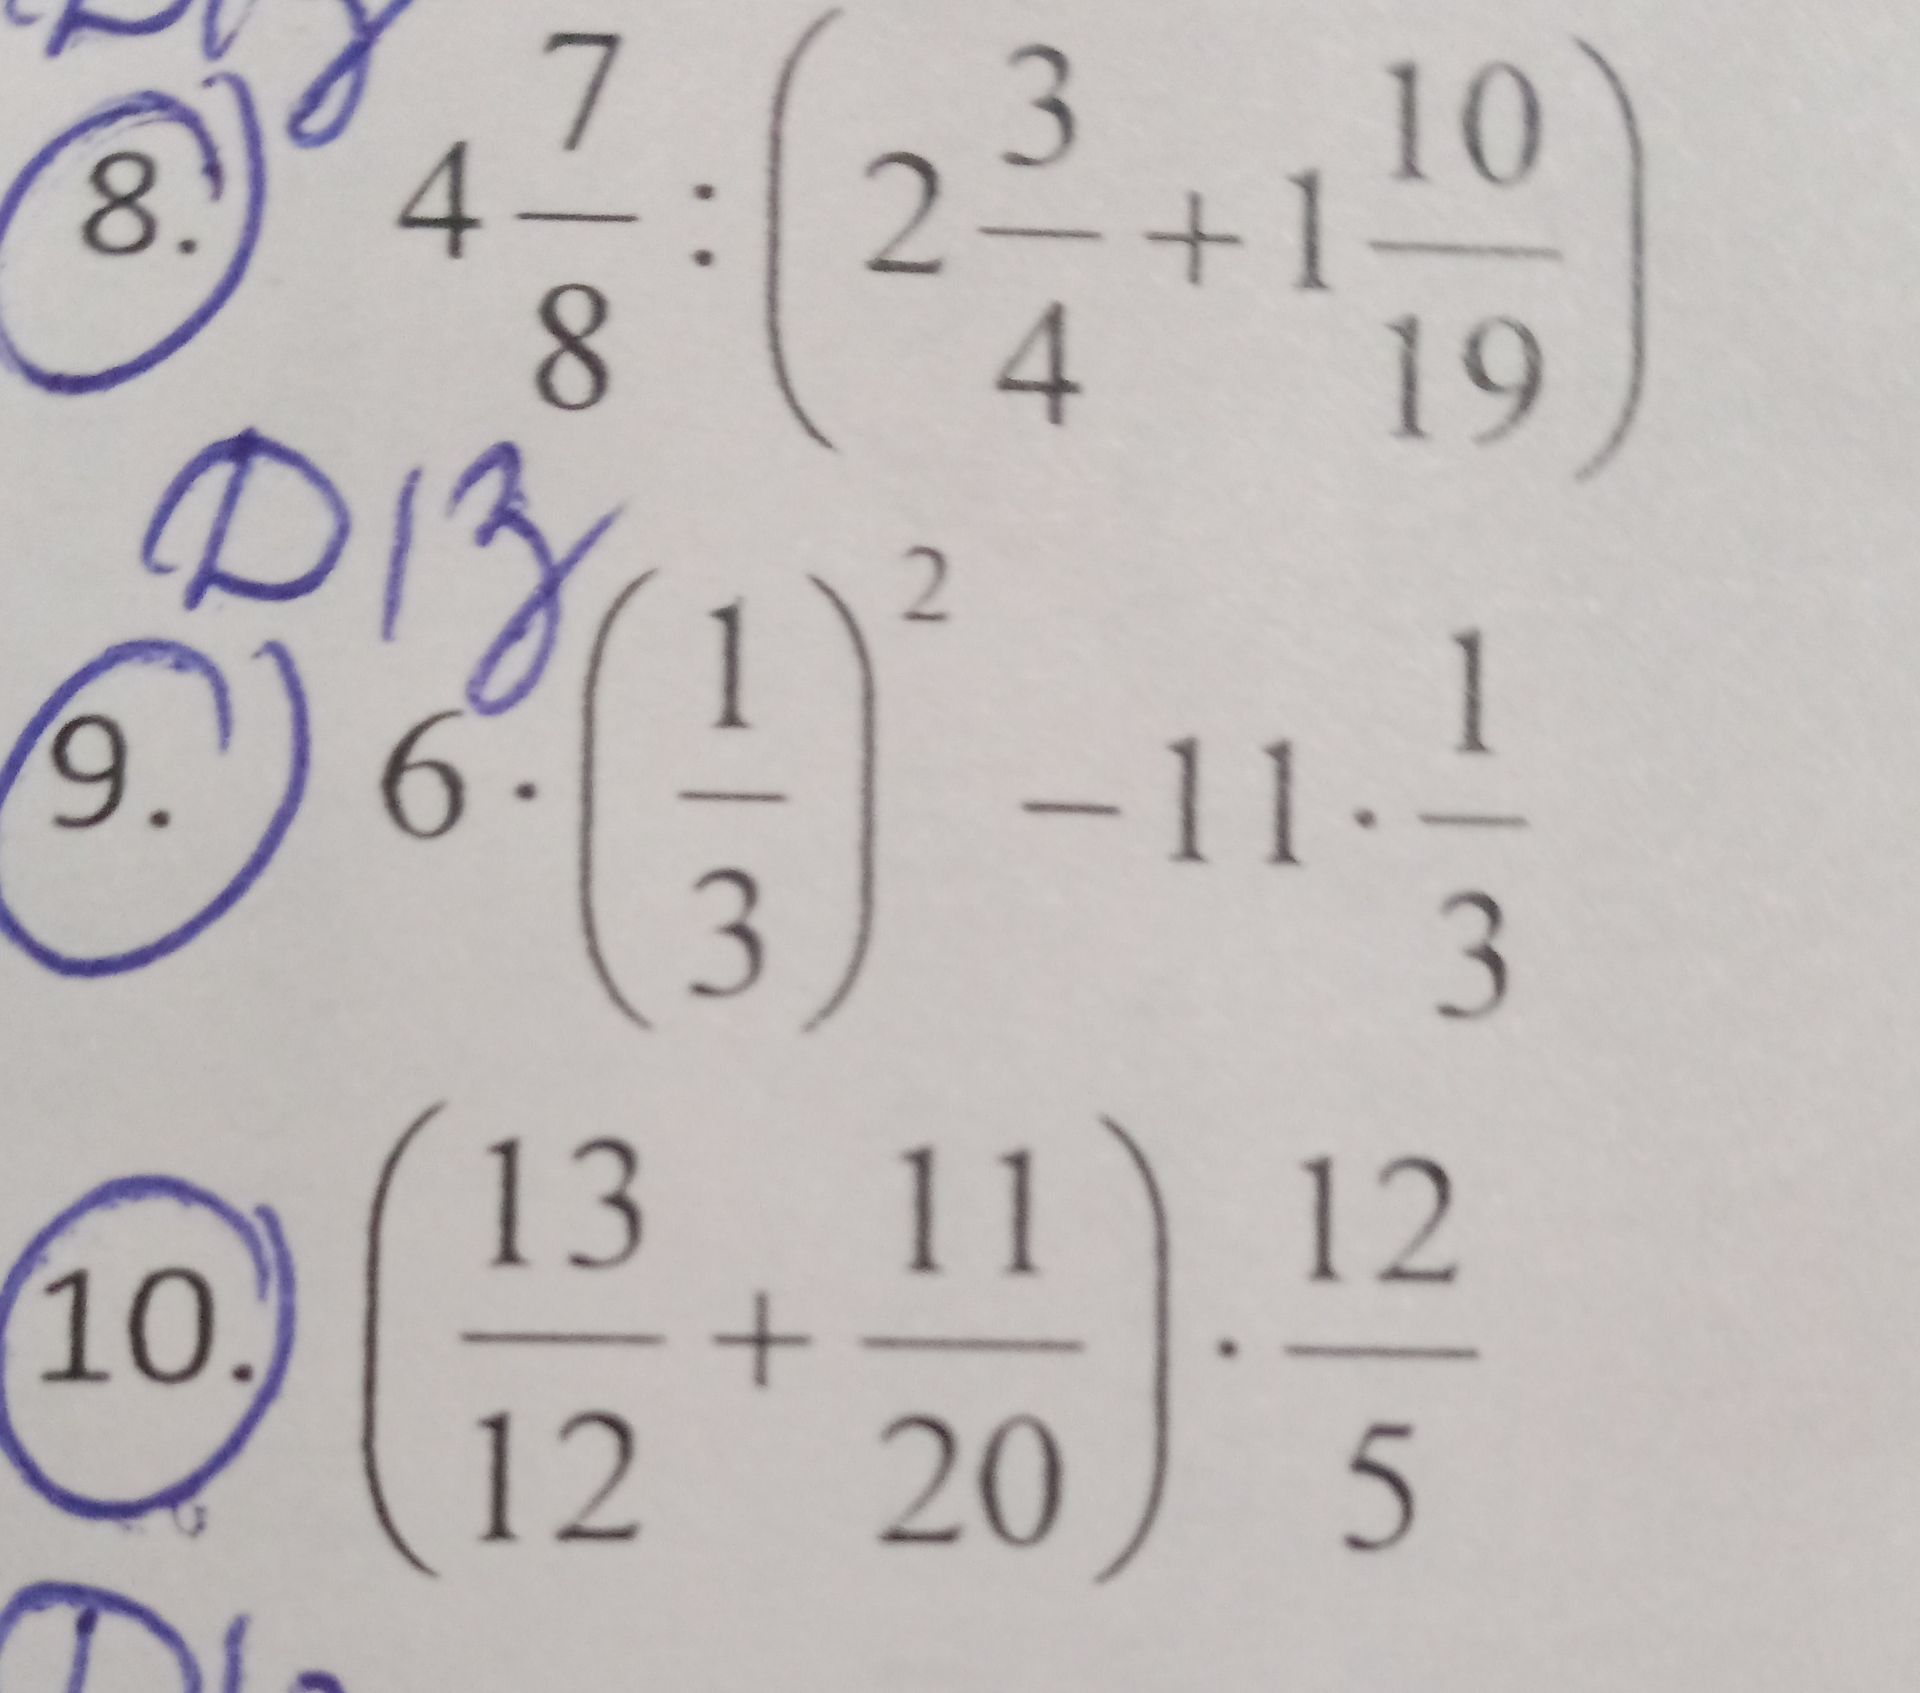 8. 4 7/8 : (2 3/4 + 1 10/19)
D/з
9. 6 · (1/3)² − 11 · 1/3
10. (13/12 + 11/20) · 12/5